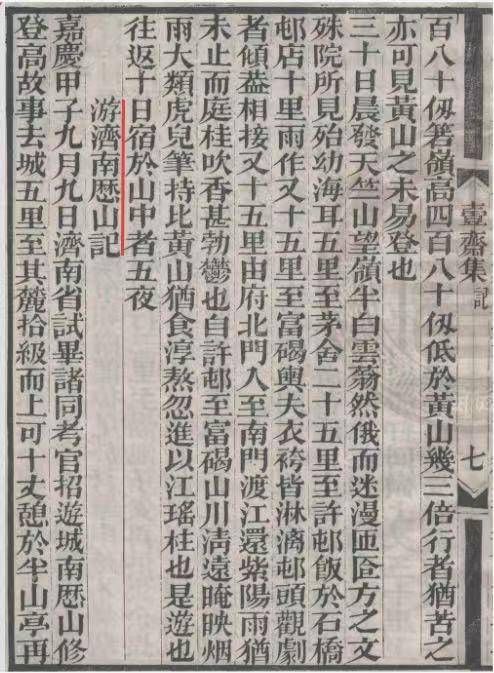 壺齋集 記 七
百八十仭箬嶺高四百八十仭低於黃山幾三倍行者猶苦之
亦可見黃山之未易登也
三十日晨發天竺山望嶺半白雲蓊然俄而迷漫匝匼方之文
殊院所見殆幼海耳五里至茅舍二十五里至許邨飯於石橋
邨店十里雨作又十五里至富碣輿夫衣袴皆淋漓邨頭觀劇
者傾葢相接又十五里由府北門入至南門渡江還紫陽雨猶
未止而庭桂吹香甚勃鬱也自許邨至富碣山川淸遠晻映烟
雨大類虎兒筆持比黃山猶食淳熬忽進以江瑤柱也是遊也
往返十日宿於山中者五夜
游濟南歷山記
嘉慶甲子九月九日濟南省試畢諸同考官招遊城南歷山修
登高故事去城五里至其麓拾級而上可十丈憩於半山亭再